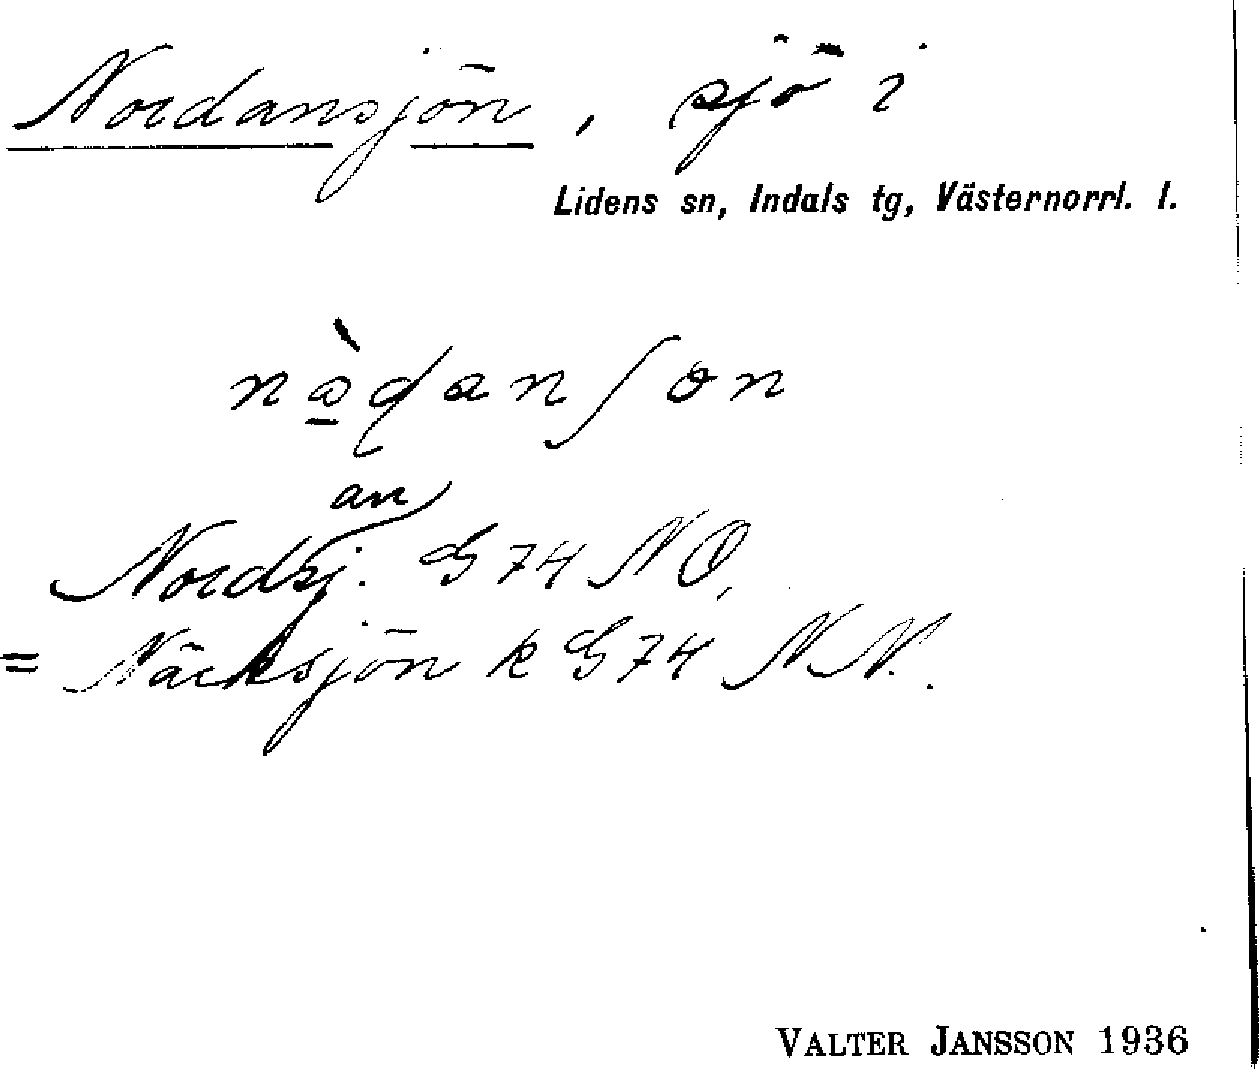 Nordansjön, sjö i
Lidens sn, Indals tg, Västernorrl. l.
an
Nordsj. G 74 NO,
= Näcksjön k G 74 NV.
VALTER JANSSON 1936